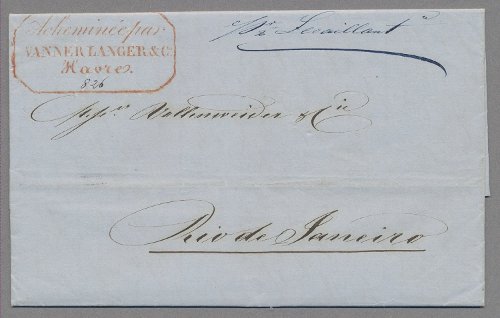 Acheminée par
WANNER LANGER & Cº
Havre.
826
pr Levaillant
Messrs Vollenweider & Cie
Rio de Janeiro